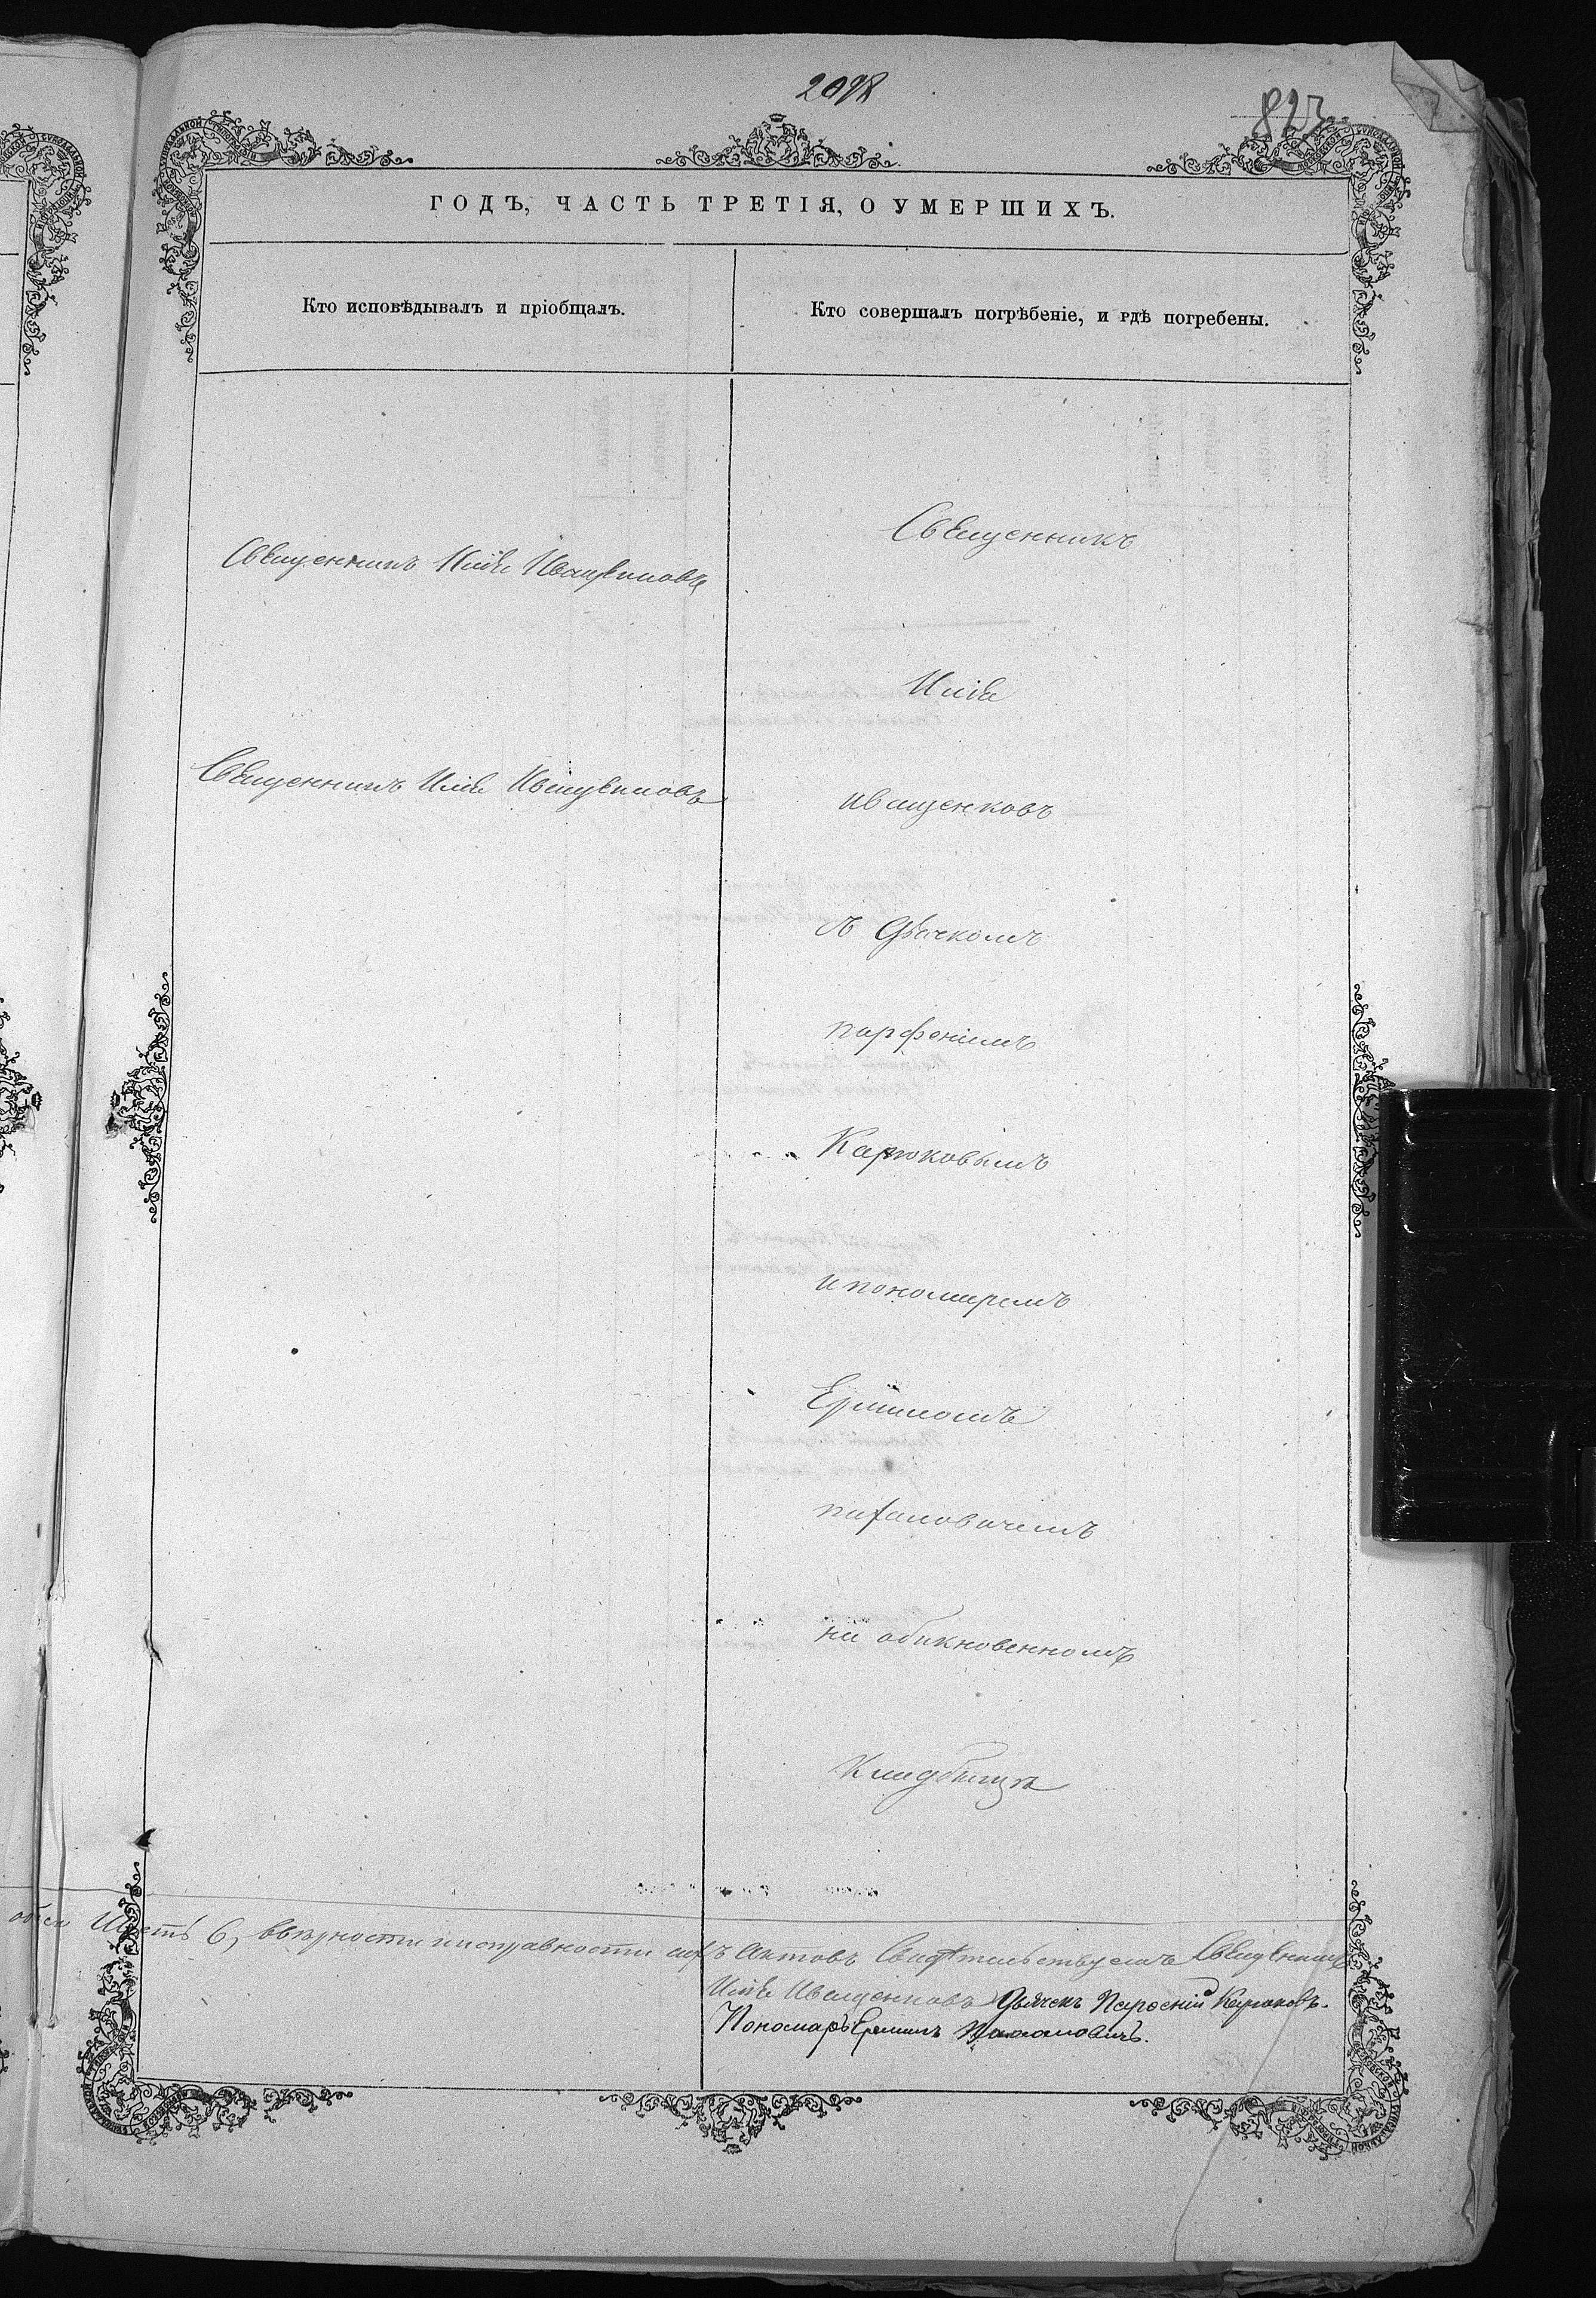 2098
823
ГОДЪ, ЧАСТЬ ТРЕТІЯ, О УМЕРШИХЪ.
Кто исповѣдывалъ и пріобщалъ.
Кто совершалъ погрѣбеніе, и гдѣ погребены.
Священникъ Илія Иващенковъ
Священникъ Илія Иващенковъ
Священникъ
Илія
иващенковъ
съ Дьячкомъ
парфеніемъ
Карюковымъ
и пономаремъ
Ермиломъ
пахаловичемъ
на обикновенномъ
Кладбищѣ
обоего Шесть 6, ввѣрности иисправности сихъ Актовъ Свидѣтельствуемъ Священникъ
Илія Иващенковъ Дьячекъ Парѳеній Карюковъ.
Пономарь Ермилъ Пахаловичъ.